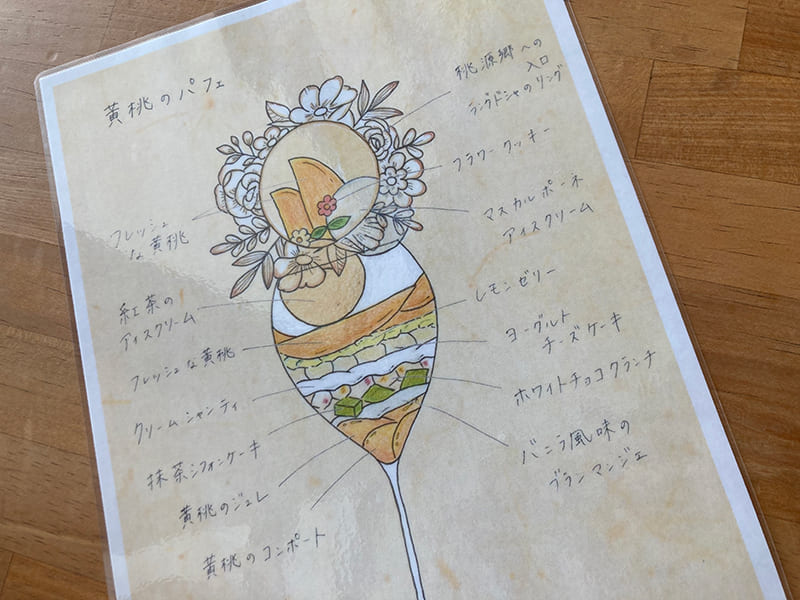 黄桃のパフェ
桃源郷への
入口
ラングドシャのリング
フラワークッキー
マスカルポーネ
アイスクリーム
レモンゼリー
ヨーグルト
チーズケーキ
ホワイトチョコクランチ
バニラ風味の
ブランマンジェ
フレッシュ
な黄桃
紅茶の
アイスクリーム
フレッシュな黄桃
クリームシャンティ
抹茶シフォンケーキ
黄桃のジュレ
黄桃のコンポート